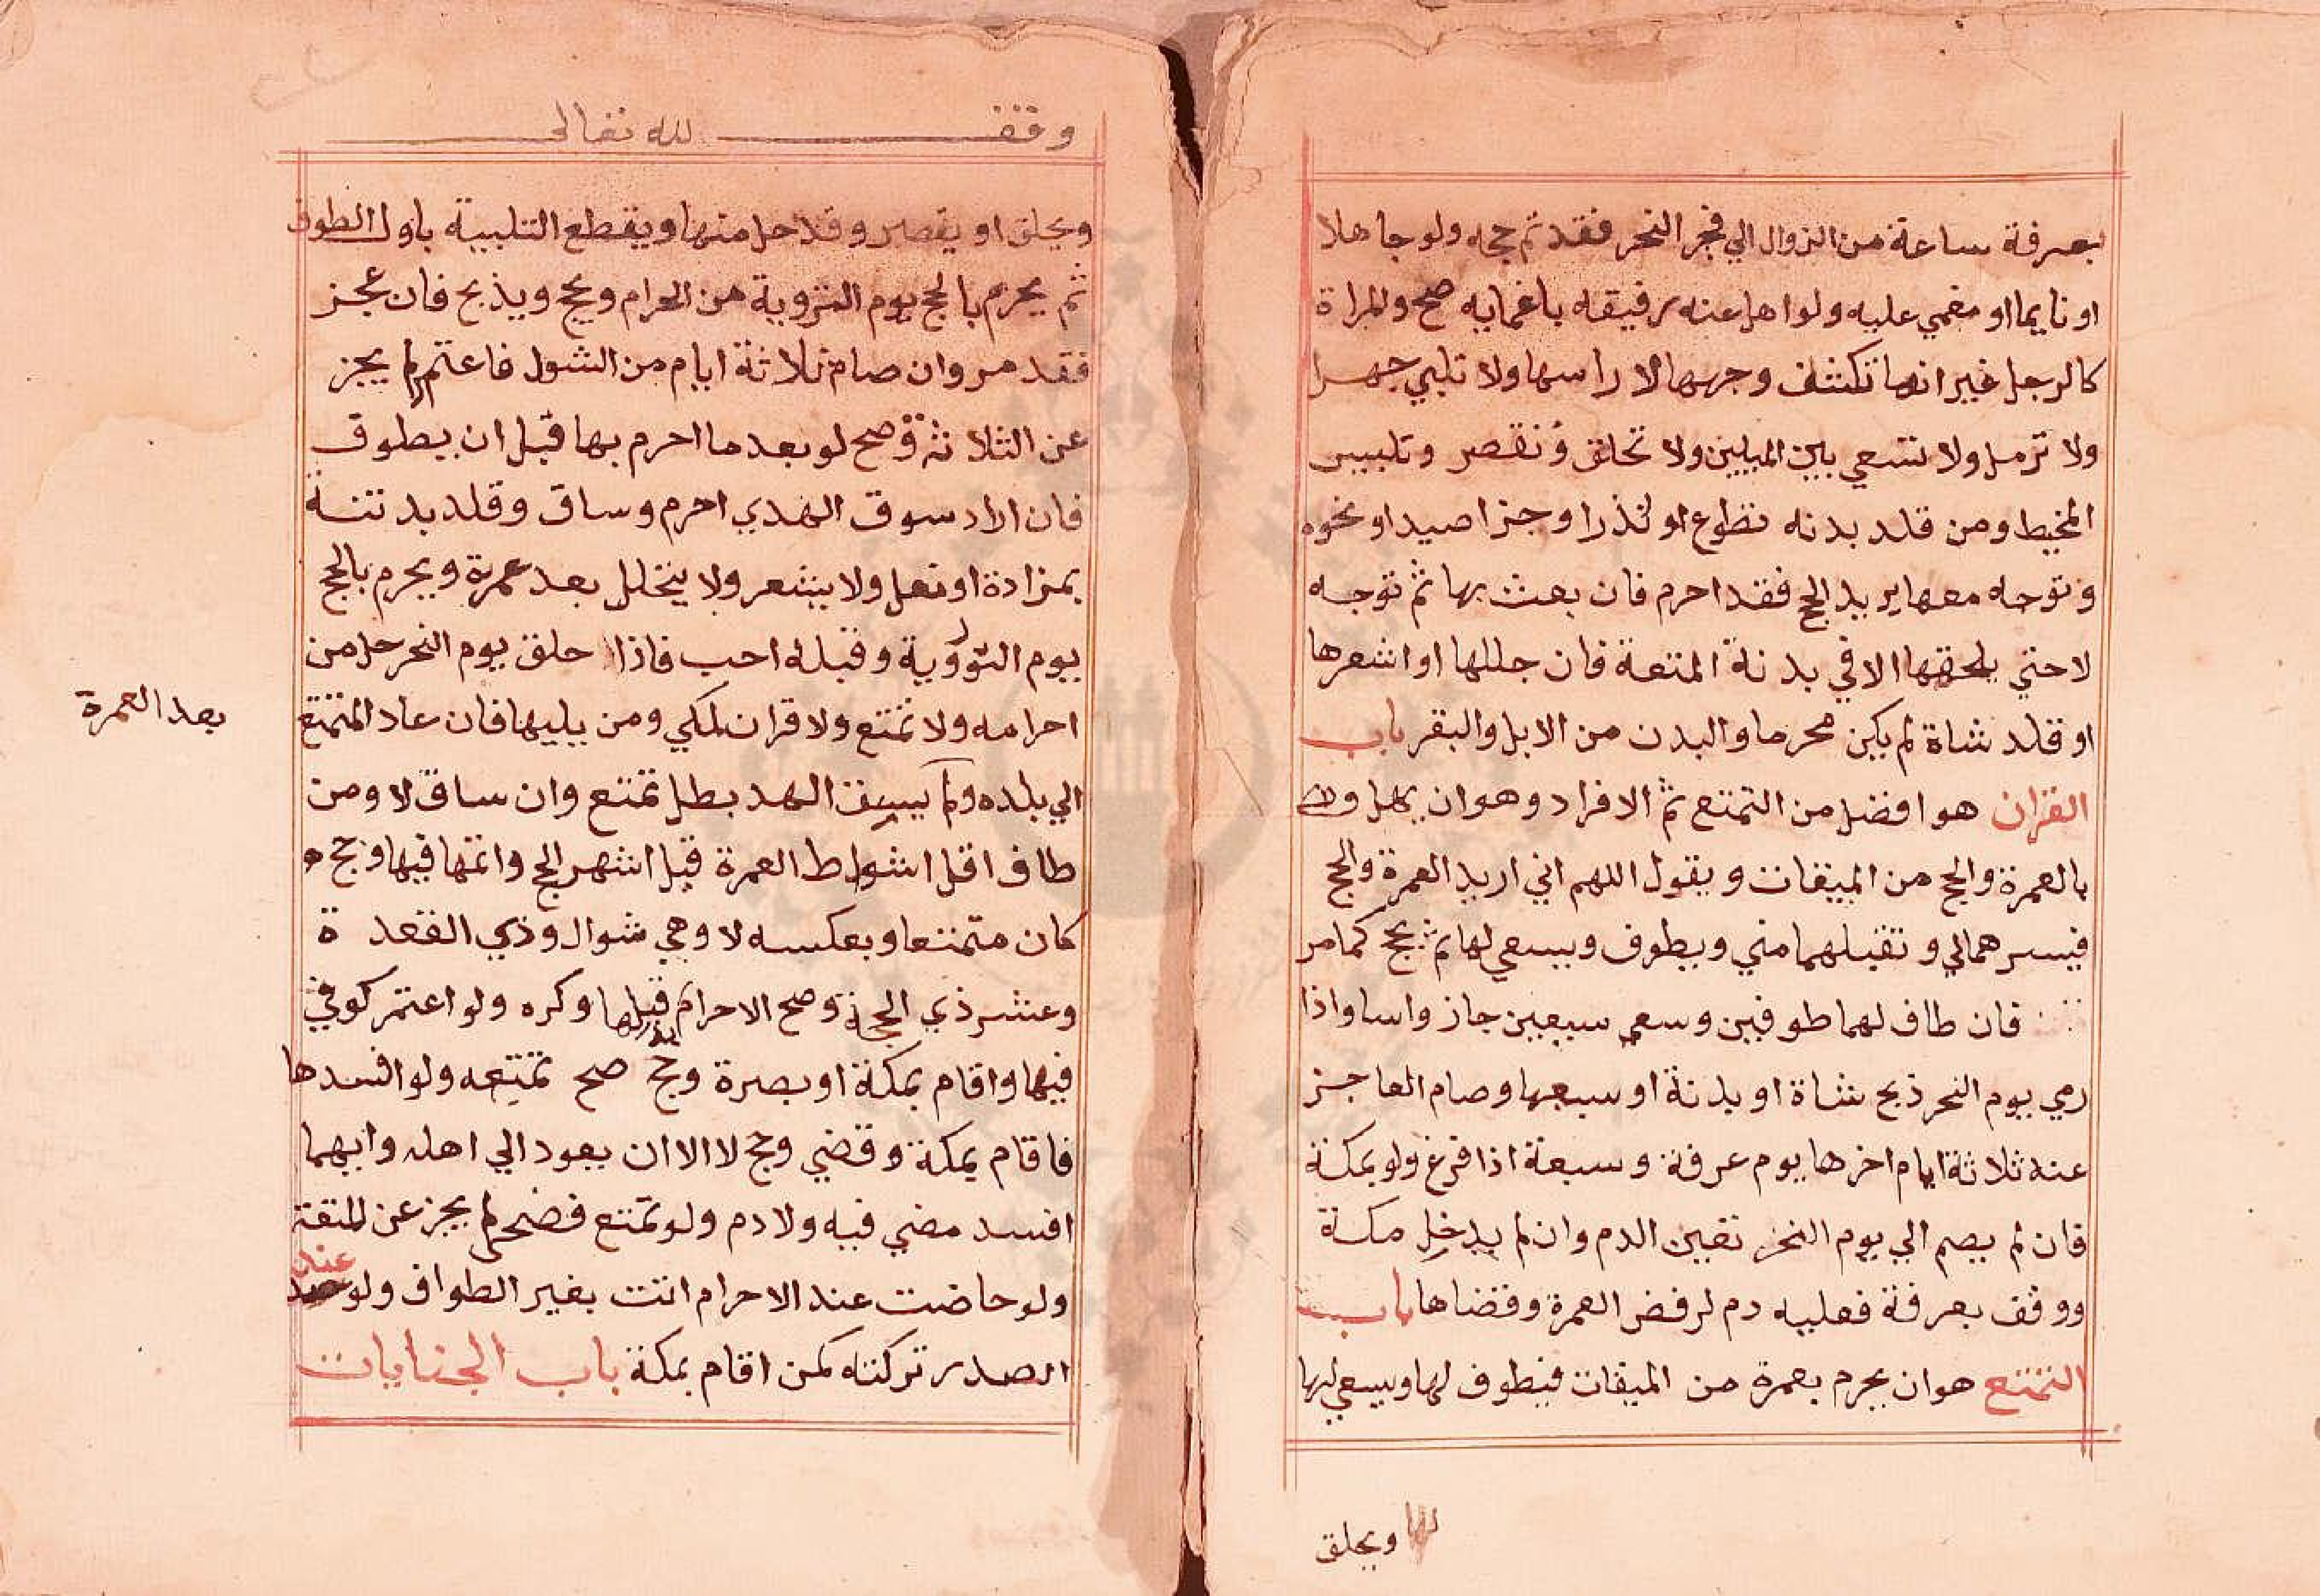 بعرفة ساعة من الزوال الي فجر النحر فقد تم حجه ولو جاهلا
او نايما او مغمي عليه ولو اهل عنه رفيقه باغمايه صح والمراة
كالرجل غير انها تكشف وجهها لا راسها ولا تلبي جهرا
ولا ترمل ولا تسعي بين الميلين ولا تحلق وتقصر وتلبس
المخيط ومن قلد بدنه تطوع او نذر او جزا صيد او نحوه
وتوجه معها يريد الحج فقد احرم فان بعث بها ثم توجه
لا حتي يلحقها الا في بدنة المتعة فان جللها او اشعرها
او قلد شاة لم يكن محرما والبدن من الابل والبقر باب
القران هو افضل من التمتع ثم الافراد وهو ان يهل
بالعمرة والحج من الميقات ويقول اللهم اني اريد العمرة والحج
فيسرهما لي وتقبلهما مني ويطوف ويسعي لها ثم يحج كما مر
فان طاف لهما طوفين وسعي سعيين جاز واسا واذا
رمي يوم النحر ذبح شاة او بدنة او سبعها وصام العاجز
عنه ثلاثة ايام اخرها يوم عرفة وسبعة اذا فرغ ولو بمكة
فان لم يصم الي يوم النحر تعين الدم وان لم يدخل مكة
ووقف بعرفة فعليه دم لرفض العمرة وقضاها باب
التمتع هو ان يحرم بعمرة من الميقات فيطوف لها ويسعي لها
لها ويحلق
وقف لله تعالى
ويحلق او يقصر وقد حل منها ويقطع التلبية باول الطوف
ثم يحرم بالحج يوم التروية من الحرام ويحج ويذبح فان عجز
فقد مر وان صام ثلاثة ايام من الشول فاعتمر لم يجز
عن الثلاثة وصح لو بعد ما احرم بها قبل ان يطوف
فان اراد سوق الهدي احرم وساق وقلد بدنتة
بمزادة او نعل ولا يشعر ولا يتحلل بعد عمرة ويحرم بالحج
يوم التروية وقبله احب فاذا حلق يوم النحر حل من
احرامه ولا تمتع ولا قران لمكي ومن يليها فان عاد المتمتع
بعد العمرة
الي بلده ولم يسق الهد بطل تمتع وان ساق لا ومن
طاف اقل اشواط العمرة قبل اشهر الحج واتمها فيها وحج
كان متمتعا وبعكسه لا وهي شوال وذي القعدة
وعشر ذي الحجة وصح الاحرام قبلها وكره ولو اعتمر كوفي
فيها واقام بمكة او بصرة وحج صح تمتعه ولو افسدها
فاقام بمكة وقضي وحج لا الا ان يعود الي اهله وايهما
افسد مضي فيه ولا دم ولو تمتع فضحي لم يجز عن المتعة
ولو حاضت عند الاحرام اتت بغير الطواف ولو عند
الصدر تركته كمن اقام بمكة باب الجنايات